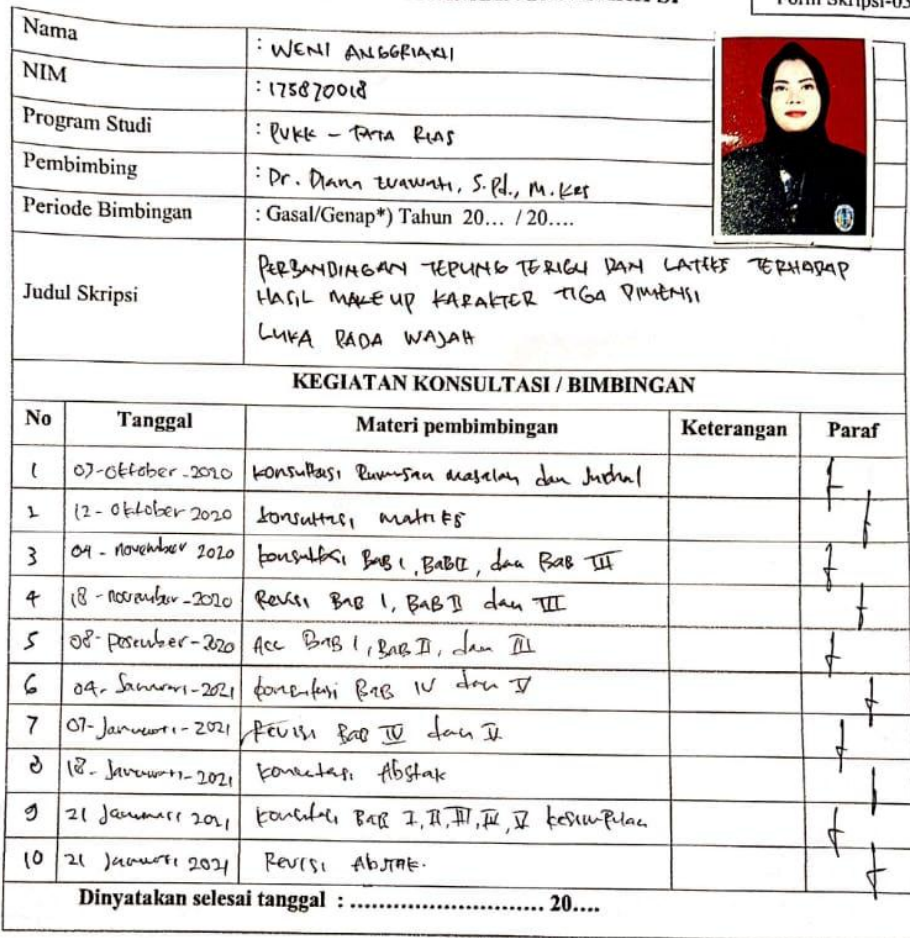 Form Skripsi-03
Nama : WENI ANGGRIANI
NIM : 175870018
Program Studi : PVKK - TATA RIAS
Pembimbing : Dr. Diana Evawati, S.Pd., M.Kes
Periode Bimbingan : Gasal/Genap*) Tahun 20... / 20....
Judul Skripsi
PERBANDINGAN TEPUNG TERIGU DAN LATEKS TERHADAP
HASIL MAKE UP KARAKTER TIGA DIMENSI
LUKA PADA WAJAH
KEGIATAN KONSULTASI / BIMBINGAN
No Tanggal Materi pembimbingan Keterangan Paraf
1 07-Oktober-2020 konsultasi Rumusan masalah dan Judul
2 12-Oktober 2020 konsultasi matriks
3 04-november 2020 konsultasi BAB I, BAB II, dan BAB III
4 18-november-2020 Revisi BAB I, BAB II dan III
5 08-Desember-2020 Acc BAB I, BAB II, dan III
6 04-Januari-2021 konsultasi BAB IV dan V
7 07-Januari-2021 Revisi Bab IV dan V
8 18-Januari-2021 konsultasi Abstak
9 21 Januari 2021 konsultasi BAB I, II, III, IV, V kesimpulan
10 21 Januari 2021 Revisi Abstak.
Dinyatakan selesai tanggal : ........................... 20....